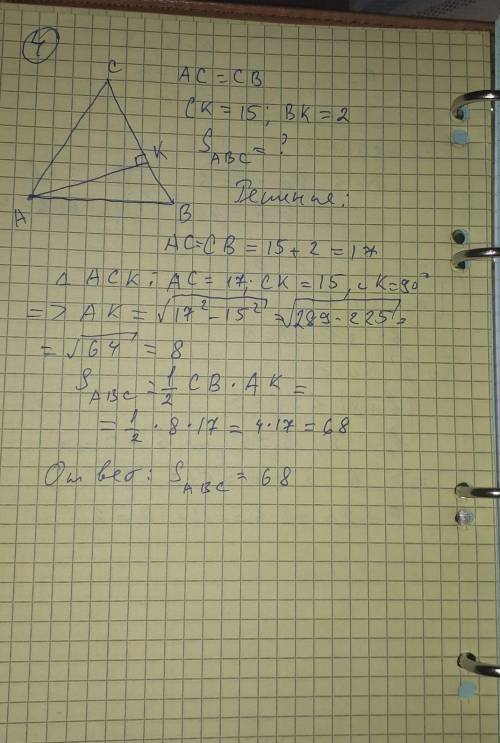 4
C
K
A
B
AC = CB
CK = 15 ; BK = 2
S_ABC = ?
Решение:
AC=CB = 15 + 2 = 17
△ ACK : AC = 17; CK = 15, ∠K=90°
=> AK = √(17² - 15²) = √(289 - 225) =
= √64 = 8
S_ABC = 1/2 CB · AK =
= 1/2 · 8 · 17 = 4 · 17 = 68
Ответ: S_ABC = 68